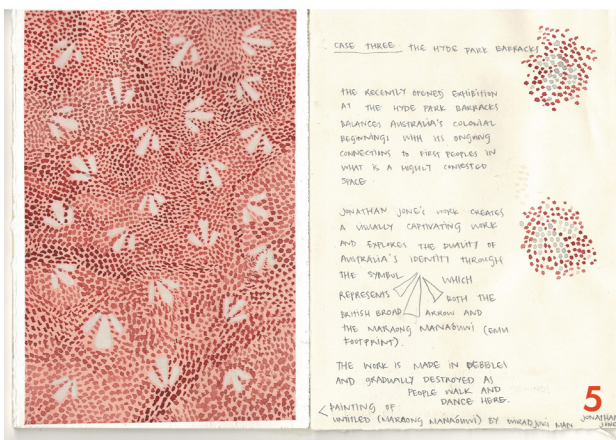 CASE THREE THE HYDE PARK BARRACKS
THE RECENTLY OPENED EXHIBITION
AT THE HYDE PARK BARRACKS
BALANCES AUSTRALIA'S COLONIAL
BEGINNINGS WITH ITS ONGOING
CONNECTIONS TO FIRST PEOPLES IN
WHAT IS A HIGHLY CONTESTED
SPACE.
JONATHAN JONE'S WORK CREATES
A VISUALLY CAPTIVATING WORK
AND EXPLORES THE DUALITY OF
AUSTRALIA'S IDENTITY THROUGH
THE SYMBOL WHICH
REPRESENTS BOTH THE
BRITISH BROAD ARROW AND
THE MARAONG MANAÓUWI (EMU
FOOTPRINT).
THE WORK IS MADE IN PEBBLES
AND GRADUALLY DESTROYED AS
PEOPLE WALK AND
DANCE HERE.
PAINTING OF
UNTITLED (MARAONG MANAÓUWI) BY WIRADJURI MAN JONATHAN
5